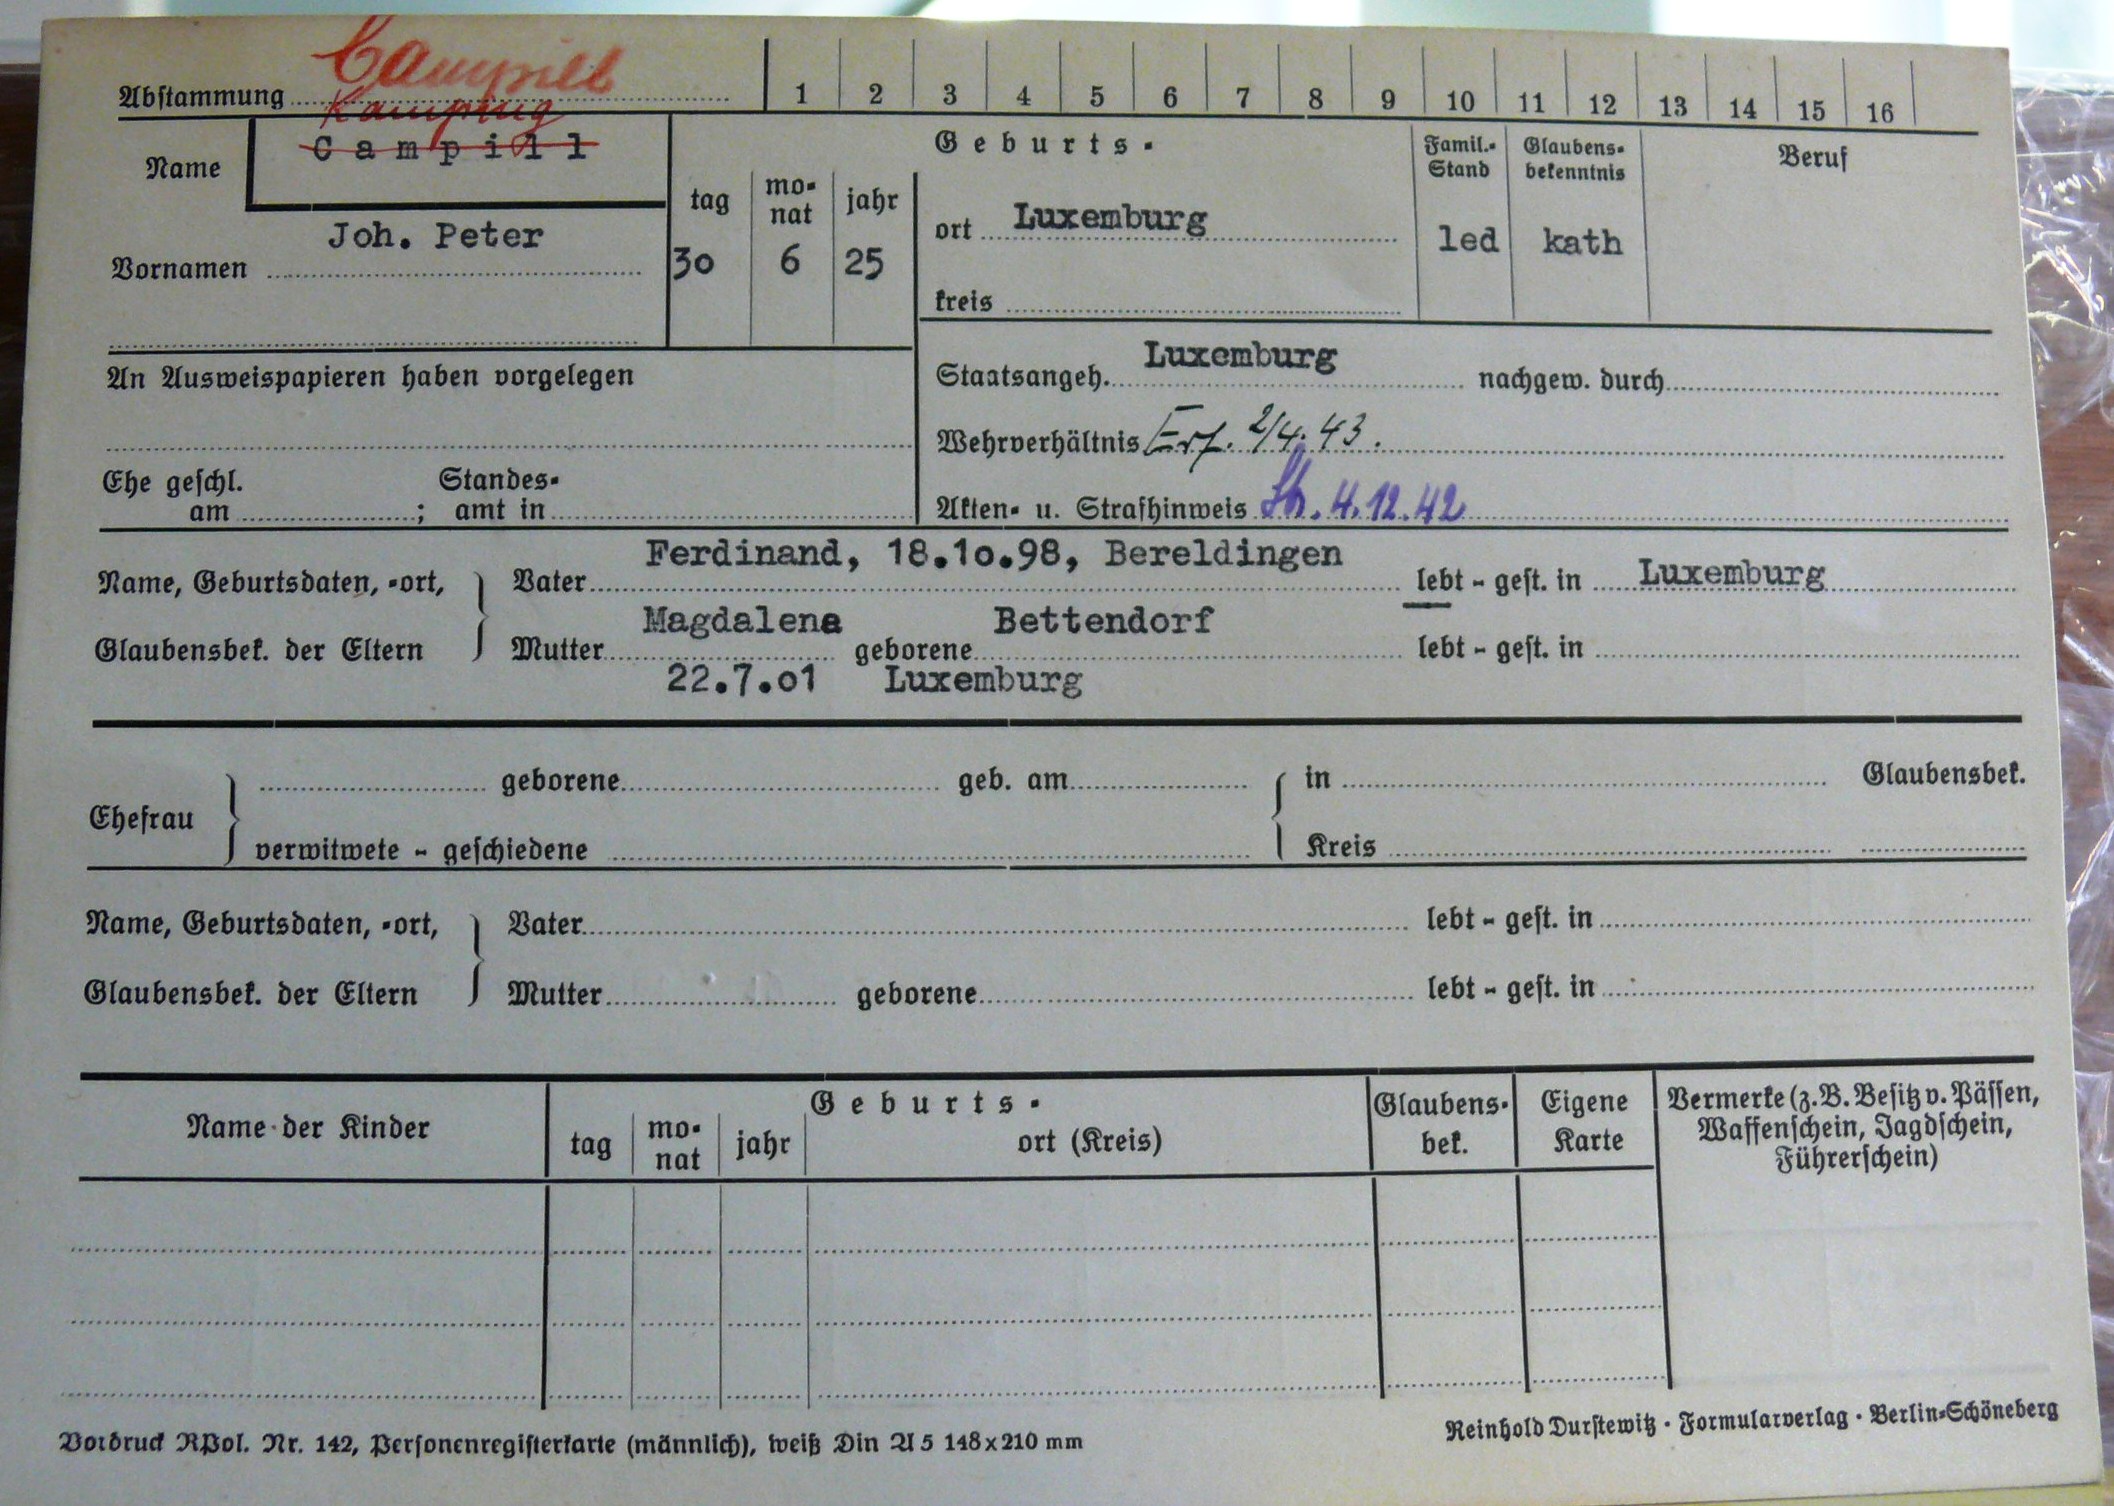 Campill
Abstammung 1 2 3 4 5 6 7 8 9 10 11 12 13 14 15 16
Kamping
Name Campill
Geburts-
Famil.-Stand Glaubens-bekenntnis Beruf
tag mo-nat jahr
ort Luxemburg led kath
Vornamen Joh. Peter 30 6 25
kreis
An Ausweispapieren haben vorgelegen
Staatsangeh. Luxemburg nachgew. durch
Wehrverhältnis Erf. 2/4. 43.
Ehe geschl. am ; Standes-amt in
Akten- u. Strafhinweis 4.12.42
Name, Geburtsdaten, -ort, Vater Ferdinand, 18.10.98, Bereldingen lebt - gest. in Luxemburg
Glaubensbek. der Eltern Mutter Magdalena geborene Bettendorf lebt - gest. in
22.7.01 Luxemburg
geborene geb. am in Glaubensbek.
Ehefrau
verwitwete - geschiedene Kreis
Name, Geburtsdaten, -ort, Vater lebt - gest. in
Glaubensbek. der Eltern Mutter geborene lebt - gest. in
Name der Kinder
Geburts-
tag mo-nat jahr ort (Kreis)
Glaubens-bek.
Eigene Karte
Vermerke (z. B. Besitz v. Pässen,
Waffenschein, Jagdschein,
Führerschein)
Vordruck RPol. Nr. 142, Personenregisterkarte (männlich), weiß Din A 5 148x210 mm
Reinhold Durstewitz · Formularverlag · Berlin-Schöneberg